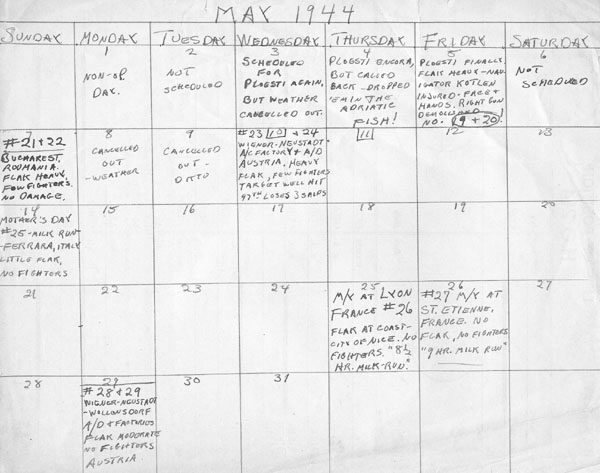 MAY 1944
SUNDAY MONDAY TUESDAY WEDNESDAY THURSDAY FRIDAY SATURDAY
1
NON-OP
DAY.
2
NOT
SCHEDULED
3
SCHEDULED
FOR
PLOESTI AGAIN,
BUT WEATHER
CANCELLED OUT.
4
PLOESTI ENCORA,
BUT CALLED
BACK - DROPPED
'EM IN THE
ADRIATIC
FISH!
5
PLOESTI FINALLY.
FLAK HEAVY - NAV-
IGATOR KOTLEN
INJURED - FACE &
HANDS. RIGHT GUN
DEMOLISHED!
NO. (19 + 20)
6
NOT
SCHEDULED
7
#21 + 22
BUCHAREST,
ROUMANIA.
FLAK HEAVY,
FEW FIGHTERS.
NO DAMAGE.
8
CANCELLED
OUT
- WEATHER
9
CANCELLED
OUT -
DITTO
#23 [10] + 24
WIGNER-NEUSTADT
A/C FACTORY & A/D
AUSTRIA, HEAVY
FLAK, FEW FIGHTERS
TARGET WELL HIT
97TH LOSES 3 SHIPS
11
12
13
14
MOTHER'S DAY
#25 - MILK RUN -
FERRARA, ITALY
LITTLE FLAK,
NO FIGHTORS
15
16
17
18
19
20
21
22
23
24
25
M/Y AT LYON
FRANCE #26
FLAK AT COAST-
CITY OF NICE. NO
FIGHTERS. "8 1/2
HR. MILK-RUN."
26
#27 M/Y AT
ST. ETIENNE,
FRANCE. NO
FLAK, NO FIGHTORS
"9 HR. MILK RUN"
27
28
29
#28 + 29
WIGNER-NEUSTADT
- WOLLONSDORF
A/D & FACTORIES
FLAK MODERATE
NO FIGHTORS
AUSTRIA.
30
31